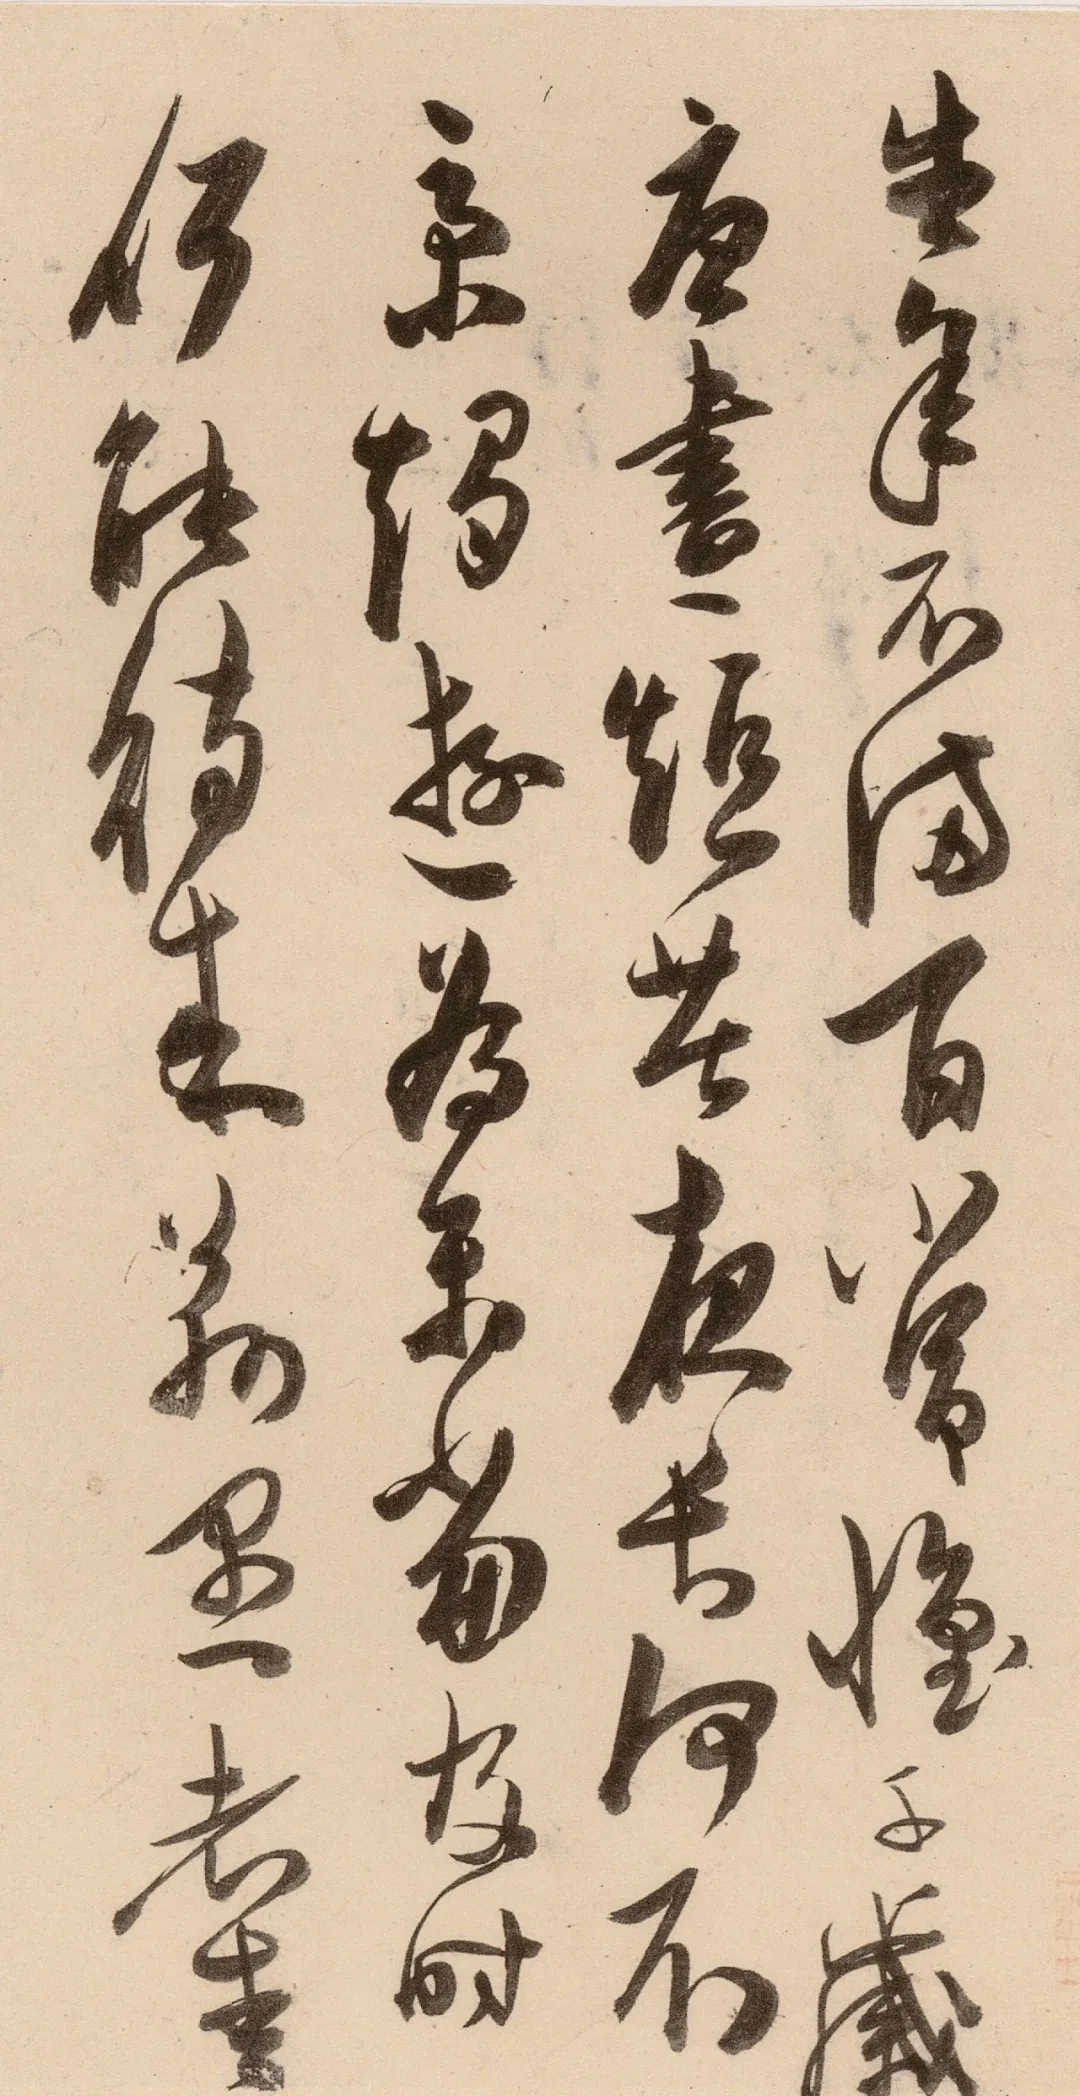 生年不滿百常懷千歲
憂晝短苦夜長何不
秉燭遊為樂當及時
何能待來茲愚者